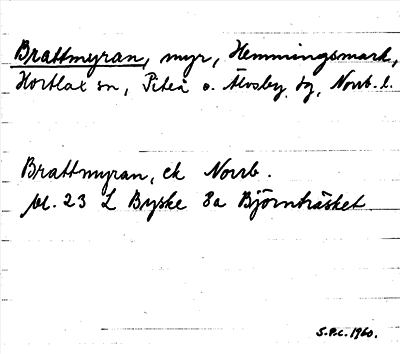 Brattmyran, myr, Hemmingsmark,
Hortlax sn, Piteå o. Älvsby tg, Norrb. l.
Brattmyran, ek Norrb.
bl. 23 L Byske 8a Björnträsket
S.P.C. 1960.